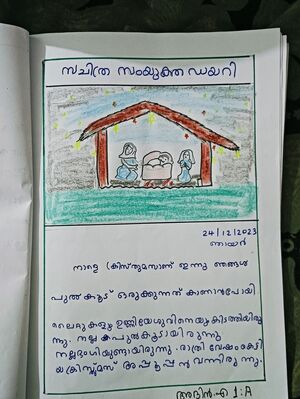 സചിത്ര സംയുക്ത ഡയറി
24/12/2023
ഞായർ
നാളെ ക്രിസ്തുമസാണ് ഇന്നു ഞങ്ങൾ
പുൽകൂട് ഒരുക്കുന്നത് കാണാൻപോയി
ഉണ്ണിയേശുവിനെയും കിടത്തിയിരു
ന്നു. നല്ല പുൽകൂടായിരുന്നു
നല്ലഭംഗിയുണ്ടായിരുന്നു. രാത്രി വേഷംകെട്ടി
യക്രിസ്തുമസ് അപ്പൂപ്പൻ വന്നിരുന്നു.
1:A